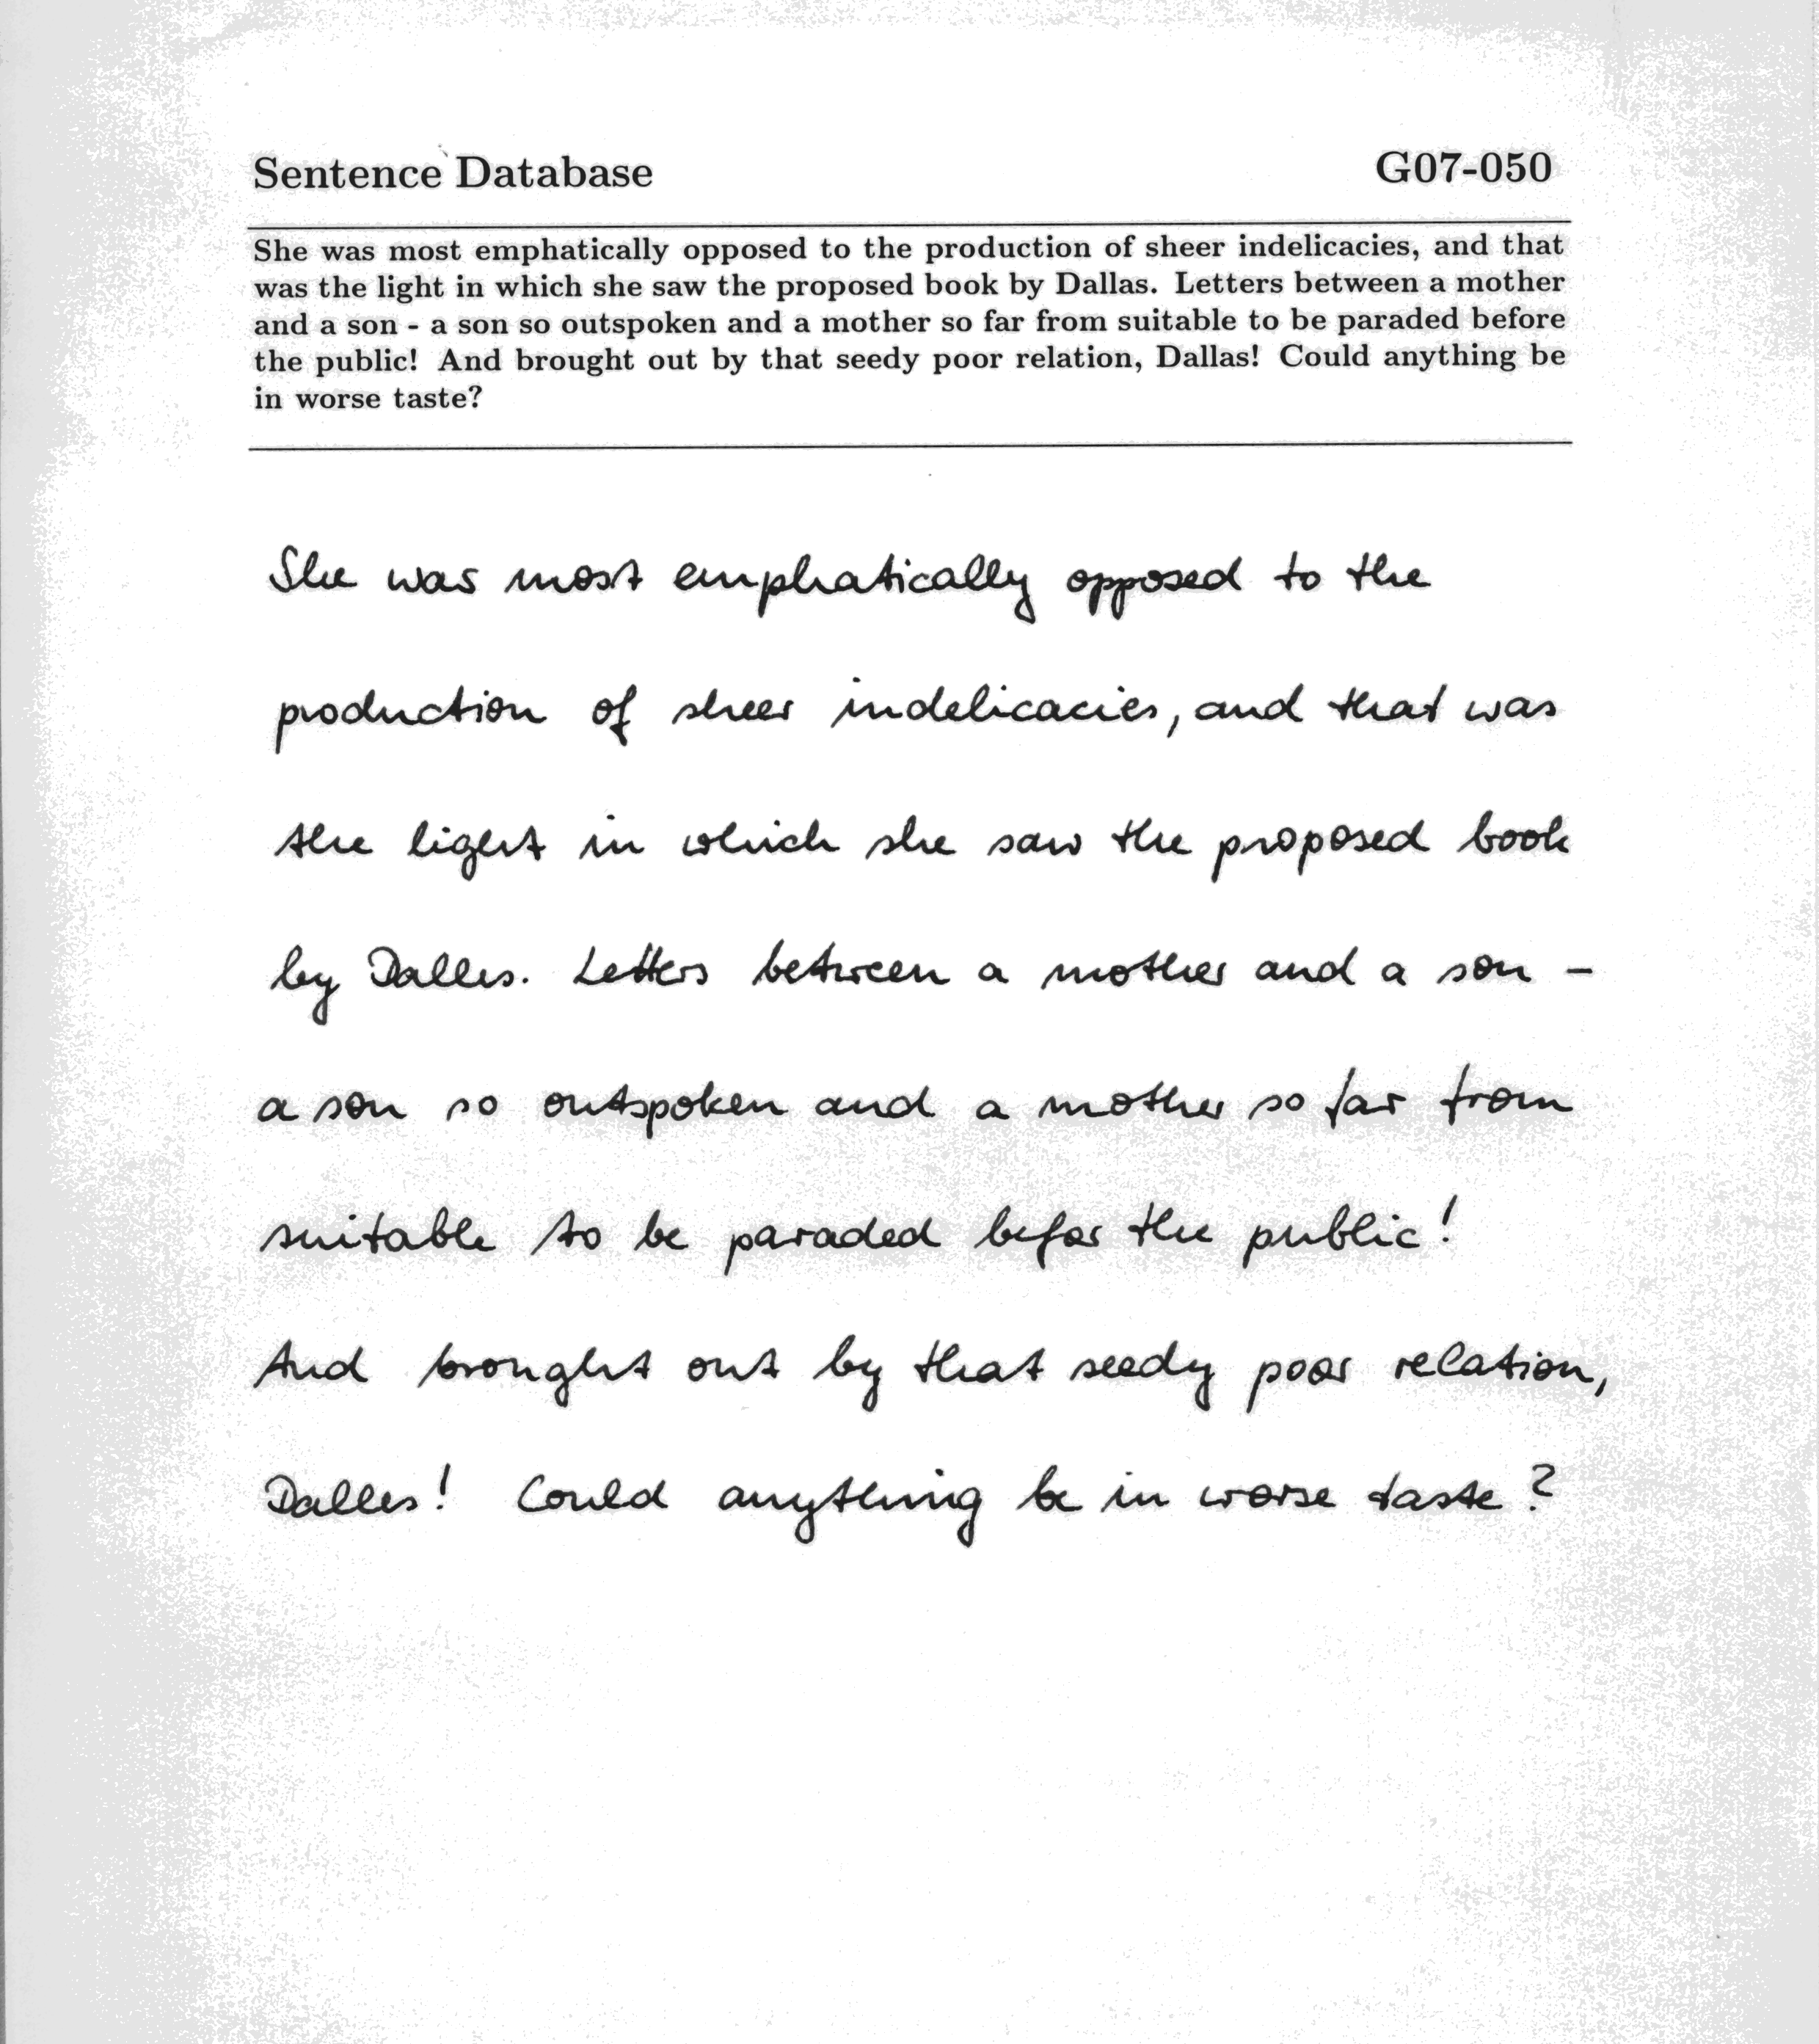 Sentence Database G07-050
She was most emphatically opposed to the production of sheer indelicacies, and that
was the light in which she saw the proposed book by Dallas. Letters between a mother
and a son - a son so outspoken and a mother so far from suitable to be paraded before
the public! And brought out by that seedy poor relation, Dallas! Could anything be
in worse taste?
She was most emphatically opposed to the
production of sheer indelicacies, and that was
the light in which she saw the proposed book
by Dalles. Letters between a mother and a son -
a son so outspoken and a mother so far from
suitable to be paraded befor the public!
And brought out by that seedy poor relation,
Dalles! Could anything be in worse taste?